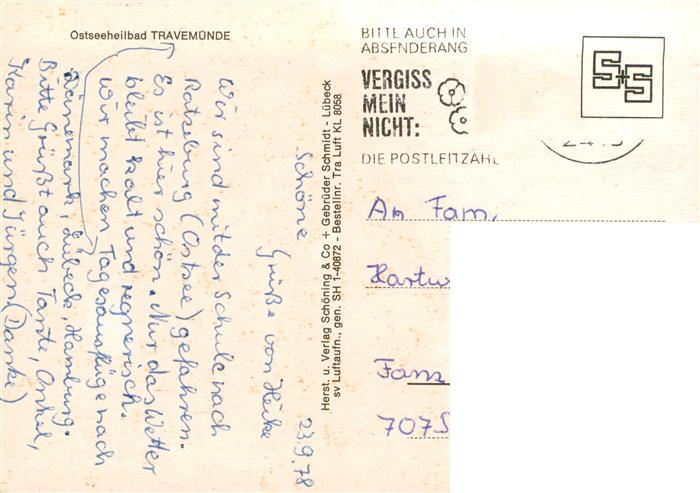 Ostseeheilbad TRAVEMÜNDE
BITTE AUCH IN
ABSENDERANG
VERGISS
MEIN
NICHT:
DIE POSTLEITZAHL
S+S
Herst. u. Verlag Schöning & Co + Gebrüder Schmidt - Lübeck
sv Luftaufn., gen. SH 1-40872 - Bestellnr. Tra Luft KL 8058
23.9.78
Wir sind mit der Schule nach
Ratzeburg (Ostsee) gefahren.
Es ist hier schön. Nur das Wetter
bleibt kalt und regnerisch.
Wir machen Tagesausflüge nach
Dänemark, Lübeck, Hamburg.
Bitte Grüßt auch Tante, Onkel,
Karin und Jürgen (Danke)
Schöne
Grüße von Heike
An Fam.
Hartw
Fam
707